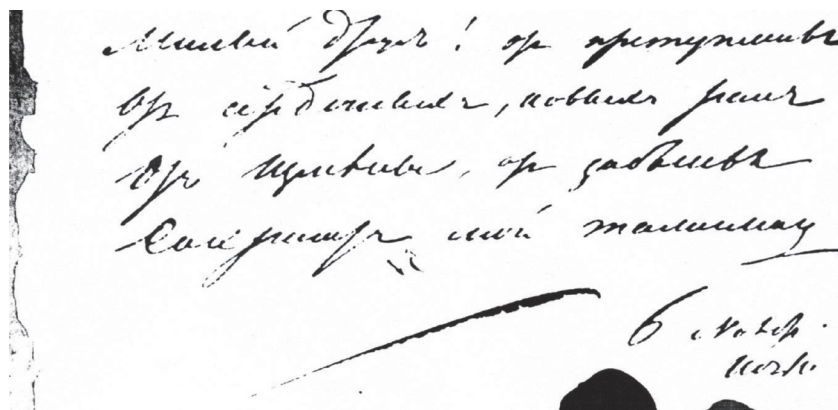 Милый другъ! от преступленья
От сердечныхъ, новыхъ ранъ
Отъ измѣны, от забвенья
Сохранитъ мой талисман
6 Ноябр.